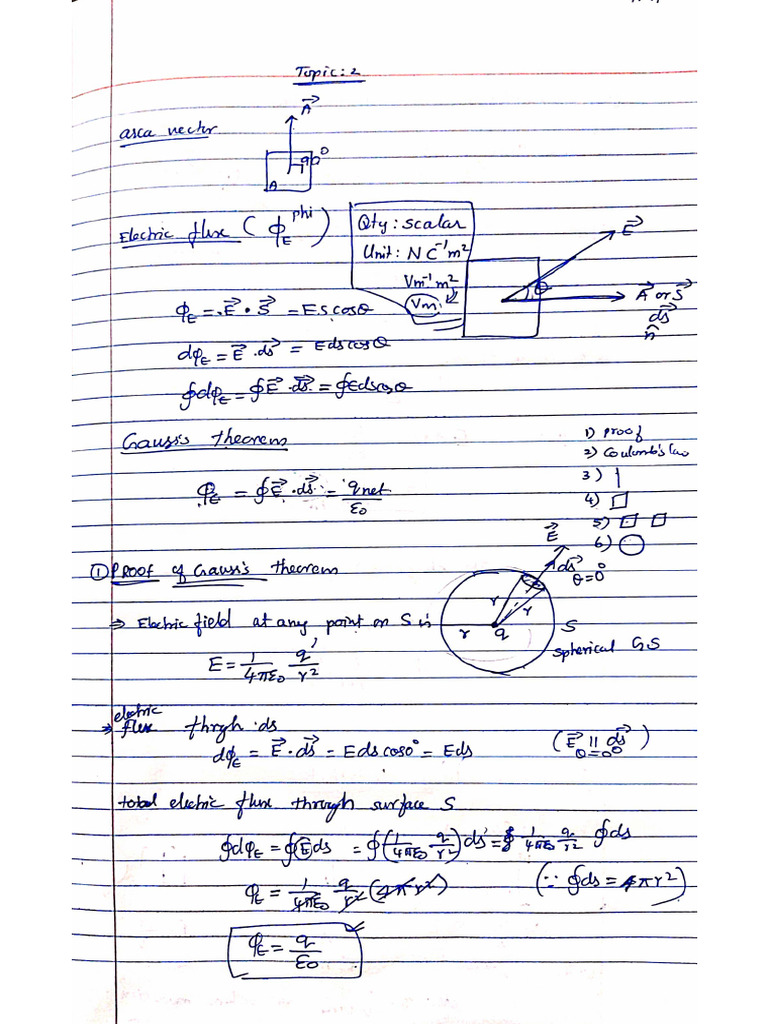 Topic: 2
area vector
A⃗
90°
A
Electric flux (ϕE phi)
Qty: scalar
Unit: N C⁻¹ m²
Vm⁻¹ m²
Vm
E⃗
θ
A⃗ or S⃗
ds⃗
n̂
ϕE = E⃗ · S⃗ = E s cosθ
dϕE = E⃗ · ds⃗ = E ds cosθ
∮dϕE = ∮E⃗ · ds⃗ = ∮E ds cosθ
Gauss's theorem
1) Proof
2) Coulomb's law
3) |
4) □
5) □ □
6) ○
ϕE = ∮E⃗ · ds⃗ = qnet/ε0
① PROOF of Gauss's theorem
E⃗
ds⃗
θ=0°
r
r
r
q
S
spherical GS
⇒ Electric field at any point on S is
E = 1/4πε0 q/r²
→ electric flux thrgh ds
dϕE = E⃗ · ds⃗ = E ds cos0° = Eds
(E⃗ || ds⃗)
θ=0°
total electric flux through surface S
∮dϕE = ∮E ds = ∮(1/4πε0 q/r²) ds = ∮ 1/4πε0 q/r² ∮ds
ϕE = 1/4πε0 q/r² (4πr²)
(∵ ∮ds = 4πr²)
ϕE = q/ε0